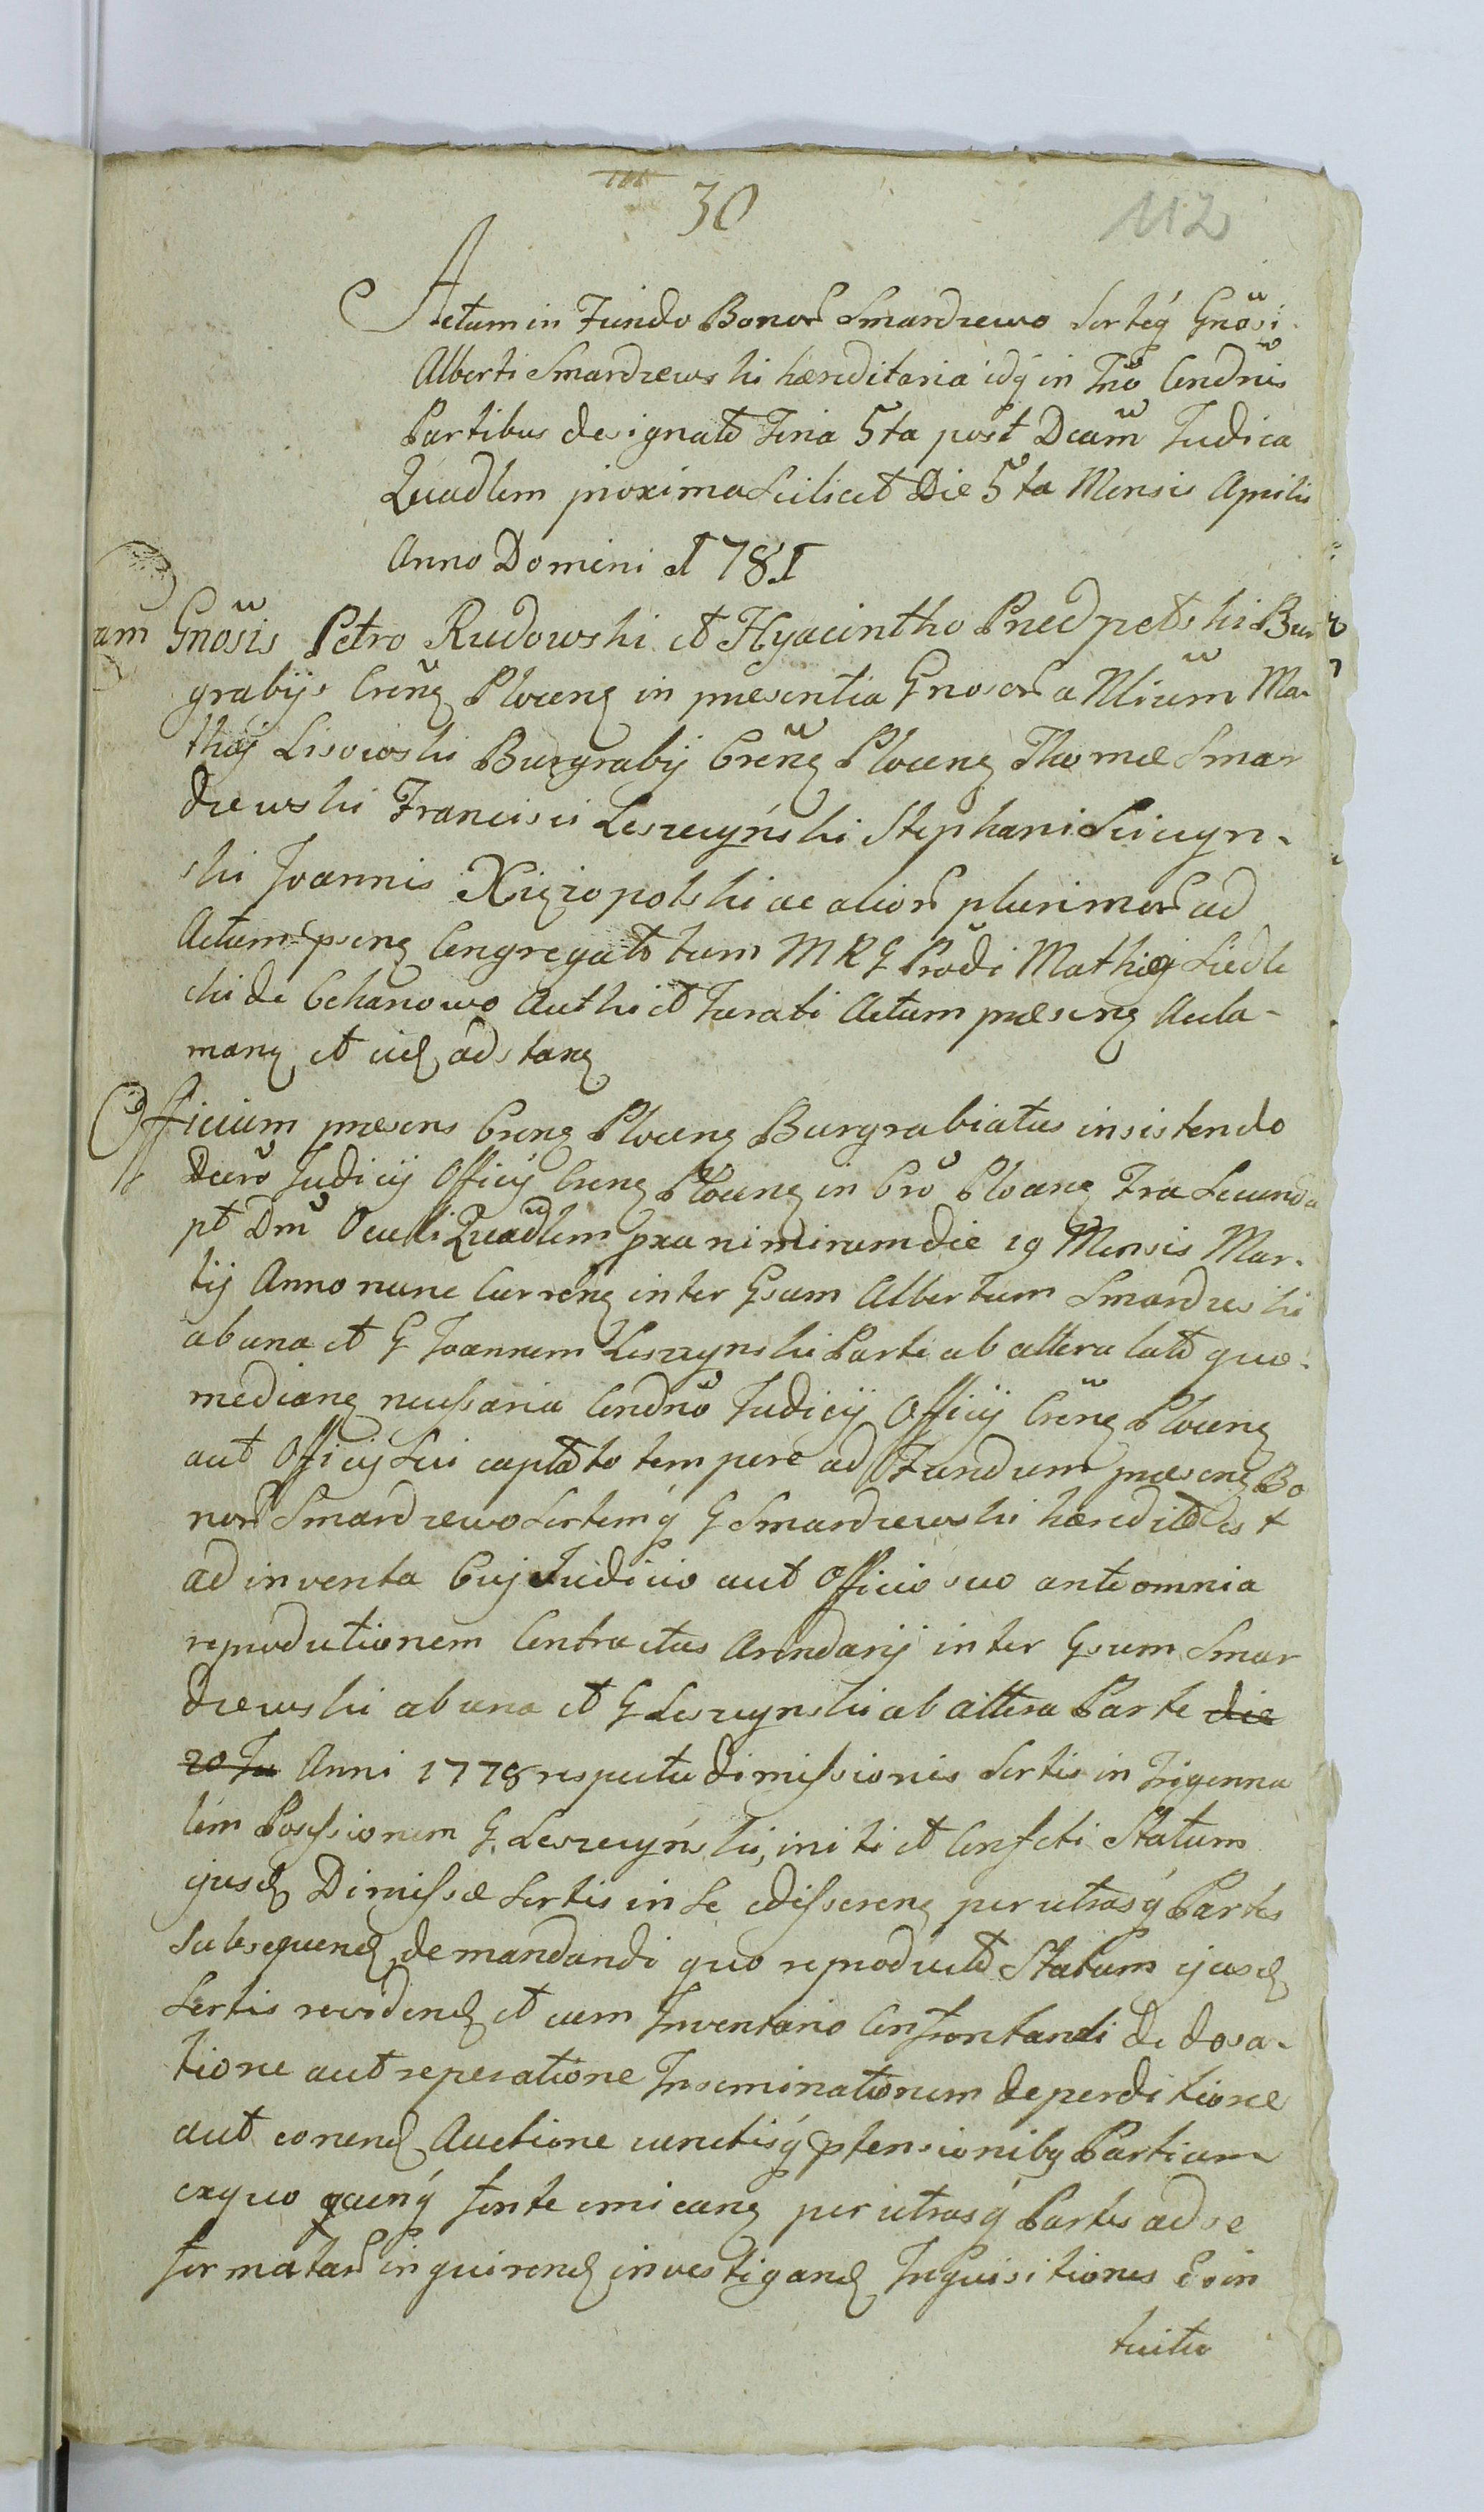 30
112
Actum in Fundo Bonor Smardzewo Sorteq Gnosi
Alberti Smardzewski hæreditaria idq in Tno Condnis
Partibus designato Feria 5ta post Dcam Judica
Quadlem proxima Scilicet Die 5ta Mensis Aprilis
Anno Domini 1781
am Gnosis Petro Rudowski et Hyacintho Przedpełski Bur
grabijs Crenz Plocenz in præsentia Gnosor a Nlium Ma-
thæj Lisowski Burgrabij Crenz Plocenz Thomæ Smar
dzewski Francisci Leszczyński Stephani Sciczyn-
ski Joannis Xięzopolski ac alior plurimor ad
Actum psenz Congregato tum MRG Prodi Mathiæj Siedle
cki de Cekanowo Authi et Jurati Actum præsenz Acla-
manz et eid adstanz
Officium præsens Crenz Plocenz Burgrabiatus insistendo
Dcro Judicij Officij Crenz Plocenz in Cro Plocenz Fra Secunda
pt Dm Oculi Quadlem pxa nimirum die 19 Mensis Mar-
tij Anno nunc Currenz inter Gsum Albertum Smardzeski
ab una et G Joannem Leszczynski Parte ab altera lato quo
medianz necessaria Condno Judicij Officij Crenz Plocenz
aut Officij Sui captato tempore ad Fundum præsenz Bo
nor Smardzewo Sortemq G Smardzewski hæreditales +
ad inventa Cuj Judicio aut Officio suo ante omnia
reproductionem Contractus Arendarij inter Gsum Smar
dzewski ab una et G Leszczynski ab altera Parte die
20 Ju Anni 1778 respectu dimissionis Sortis in Trigenna
lem Possessionem G. Leszczyński, initi et Confcti Statum
ejusd Dimissæ Sortis in Se edisserenz per utrasq Partes
Subsequend demandandi quo reproducto Statum ejusd
Sortis revidend et cum Inventario Confrontandi de desa-
tione aut reperatione Inseminationum deperditione
aut eorund Auctione cunctisq ptensionibq Partium
exquo qcunq fonte emicanz per utrasq Partes ad se
formatar inquirend investigand Inquisitiones Eoin
tuitu